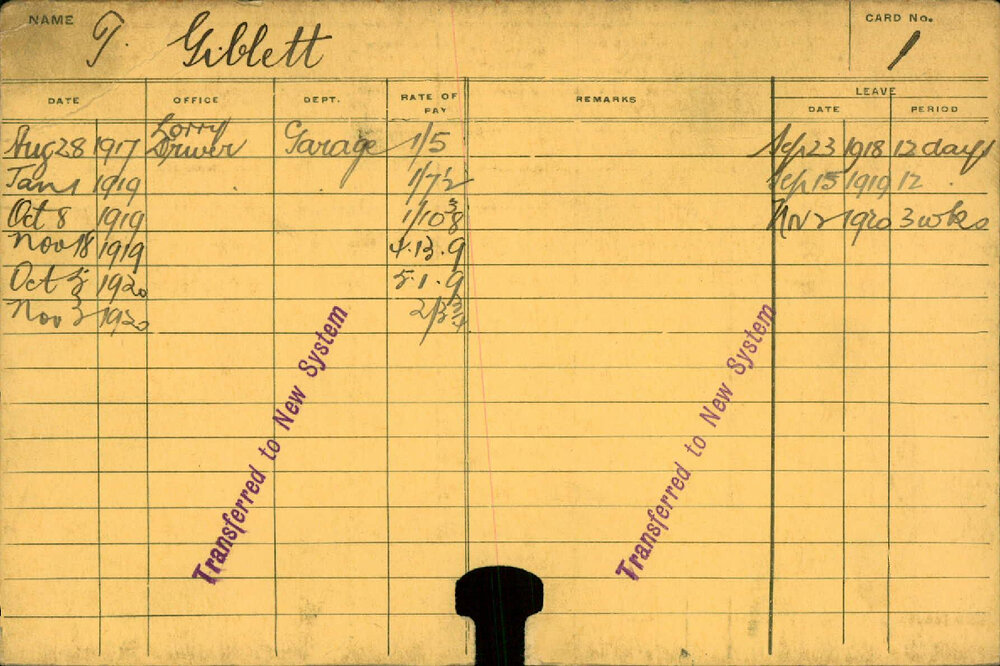 NAME T. Giblett CARD No. 1
DATE OFFICE DEPT. RATE OF PAY REMARKS LEAVE
DATE PERIOD
Aug 28 1917 Lorry Driver Garage 1/5 Sep 23 1918 12 days
Jan 1 1919 1/7½ Sep 15 1919 12
Oct 8 1919 1/10⅜ Nov 2 1920 3 wks
Nov 18 1919 4.13.9
Oct 5 1920 5.1.9
Nov 3 1920 2/3¾
Transferred to New System
Transferred to New System